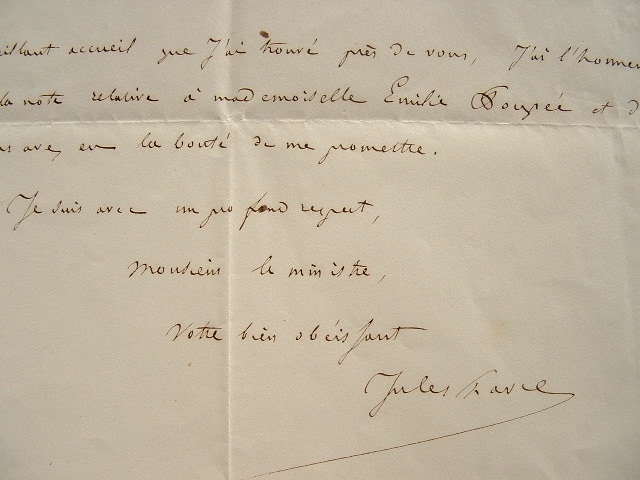 illant accueil que J'ai trouvé près de vous, J'ai l'honneu
la note relative à mademoiselle Emilie et d
us avez eu la bonté de me promettre.
Je suis avec un profond respect,
Monsieur le ministre,
Votre bien obéissant
Jules Favre